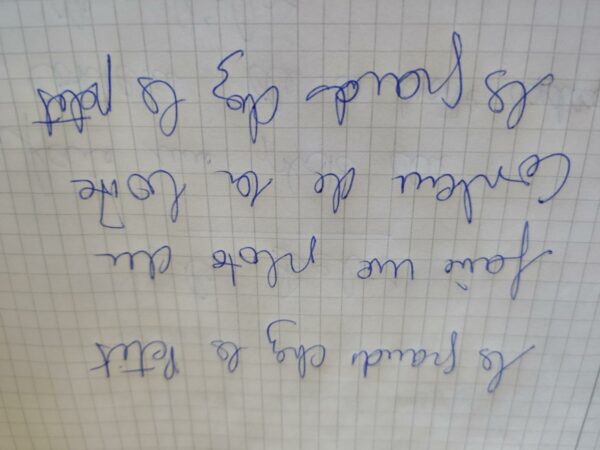 les grands chez le Petit
faire une photo du
Contenu de la boîte
les grands chez le petit